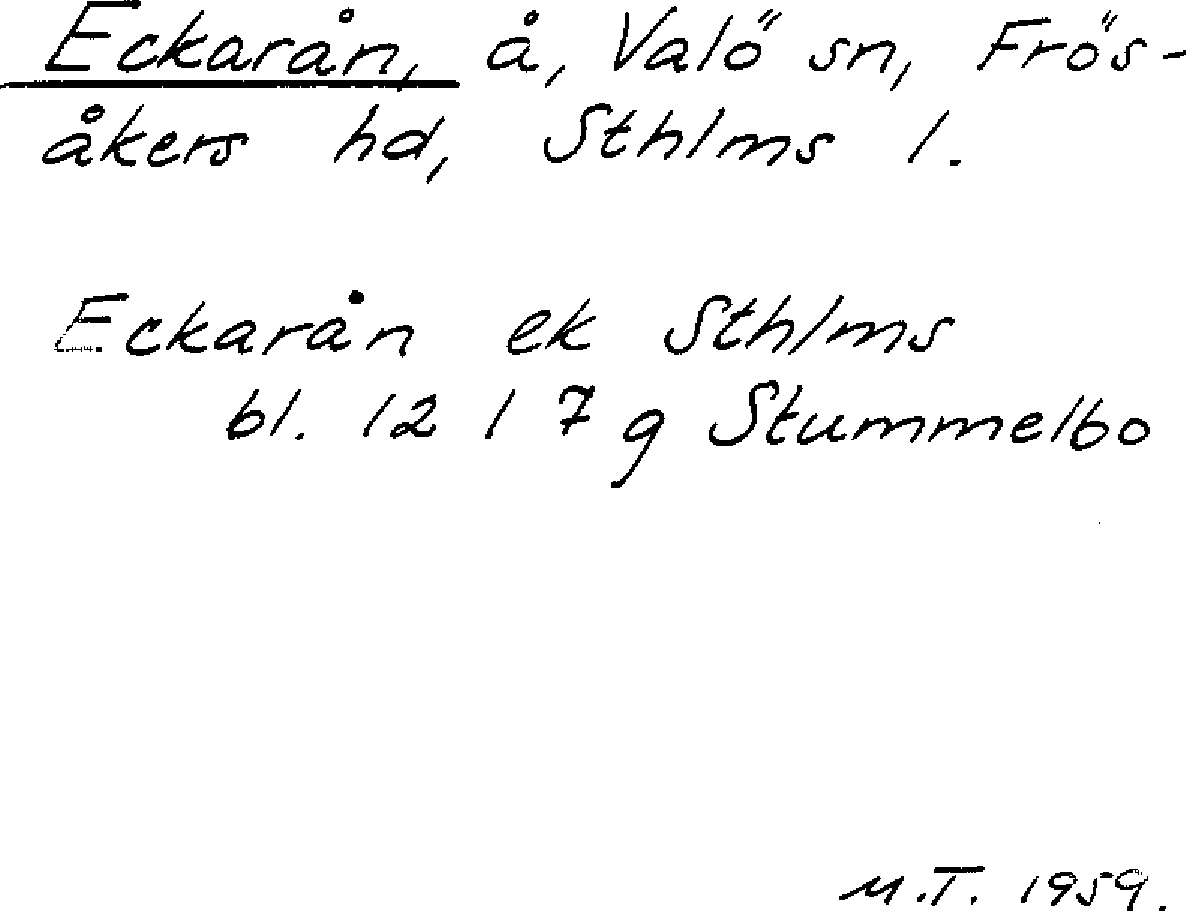 Eckarån, å, Valö sn, Frös-
åkers hd, Sthlms l.
Eckarån ek Sthlms
bl. 12 l 7 g Stummelbo
M.T. 1959.